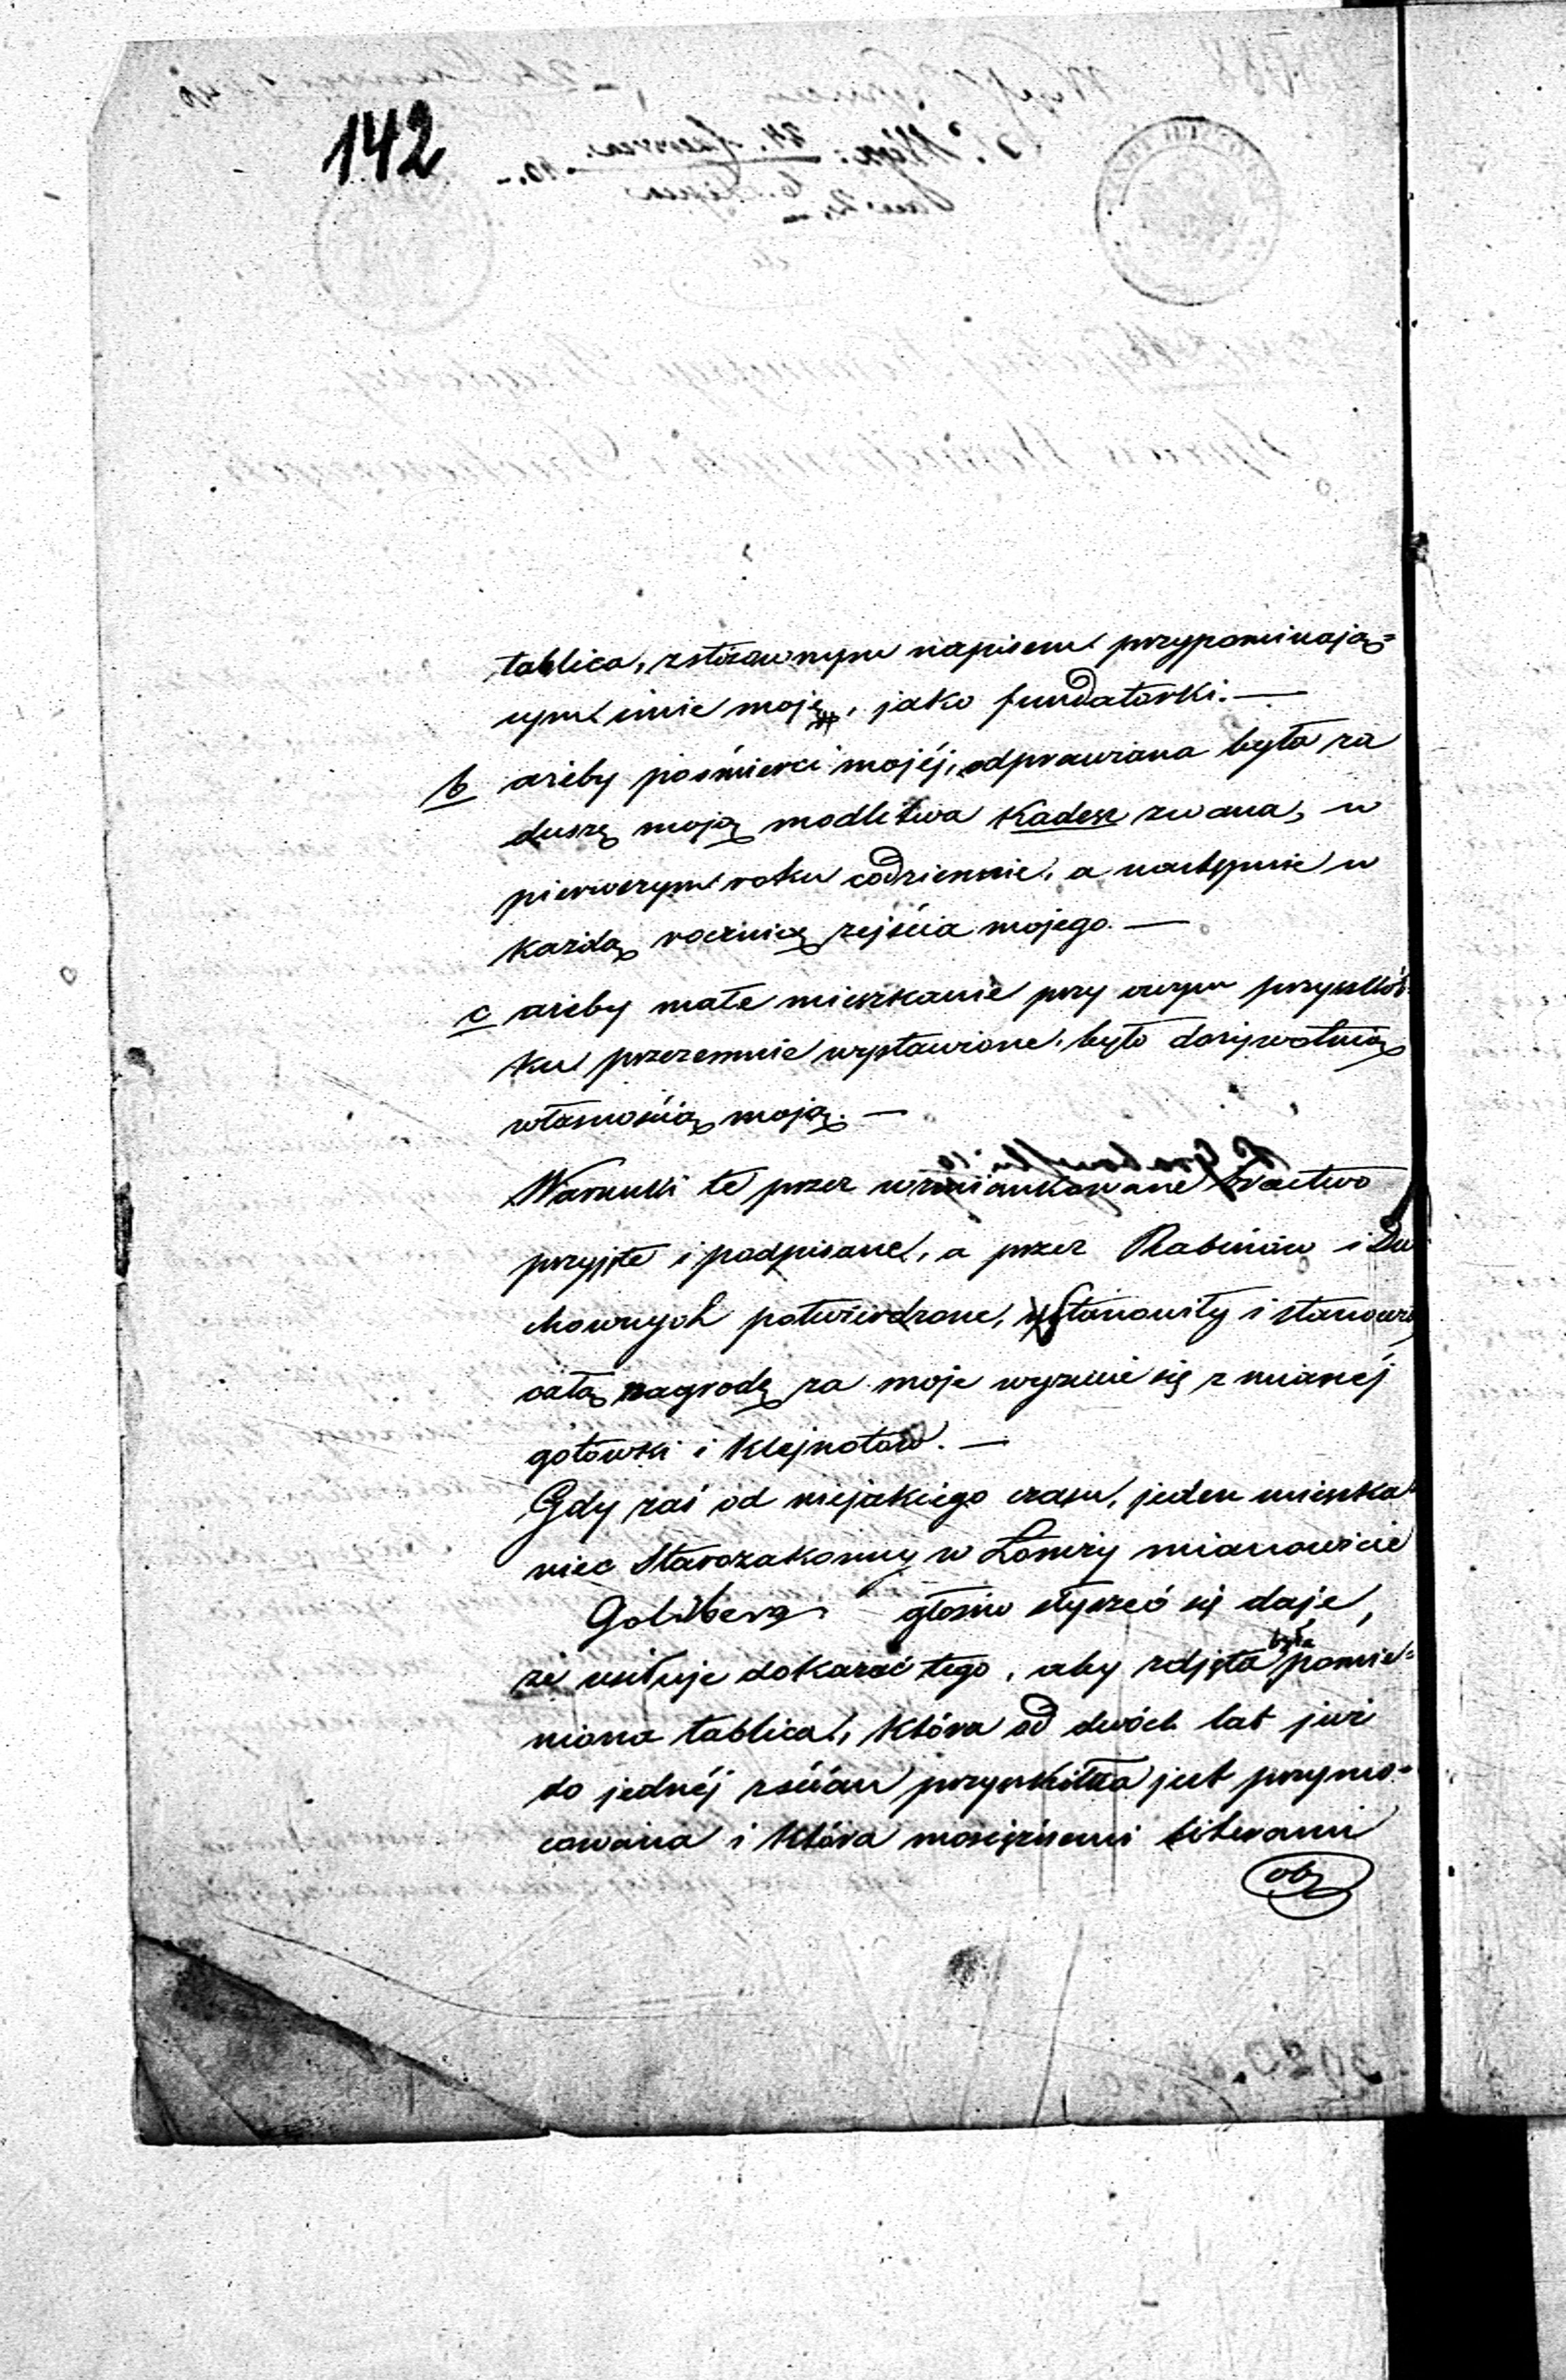 142
tablica, z stosownym napisem przypominają=
cym imie moje, jako fundatorki. —
b ażeby pośmierci mojéj, odprawiana była za
duszę moją modlitwa Kadesz zwana, w
pierwszym roku codziennie, a następnie w
każdą rocznicę zejścia mojego. —
c ażeby małe mieszkanie przy owym przyszkół=
ku przezemnie wystawione, było dożywotnią
własnością moją. —
Warunki te przez wzmiankowane Bractwo
przyjęte i podpisane, a przez Rabinów i Du
chownych potwierdzone, stanowiły i stanowią
całą nagrodę za moje wyzucie się z mianéj
gotowski i klejnotów. —
Gdy zaś od niejakiego czasu, jeden mieszka=
niec Starozakonny w Łomży mianowicie
Goldberg głośno słyszeć się daje,
że usiłuje dokazać tego, aby zdjęta była pomie=
niona tablica, która od dwóch lat już
do jednéj z ścian przyszkółka jest przymo=
cowana i która mosiężnemi literami